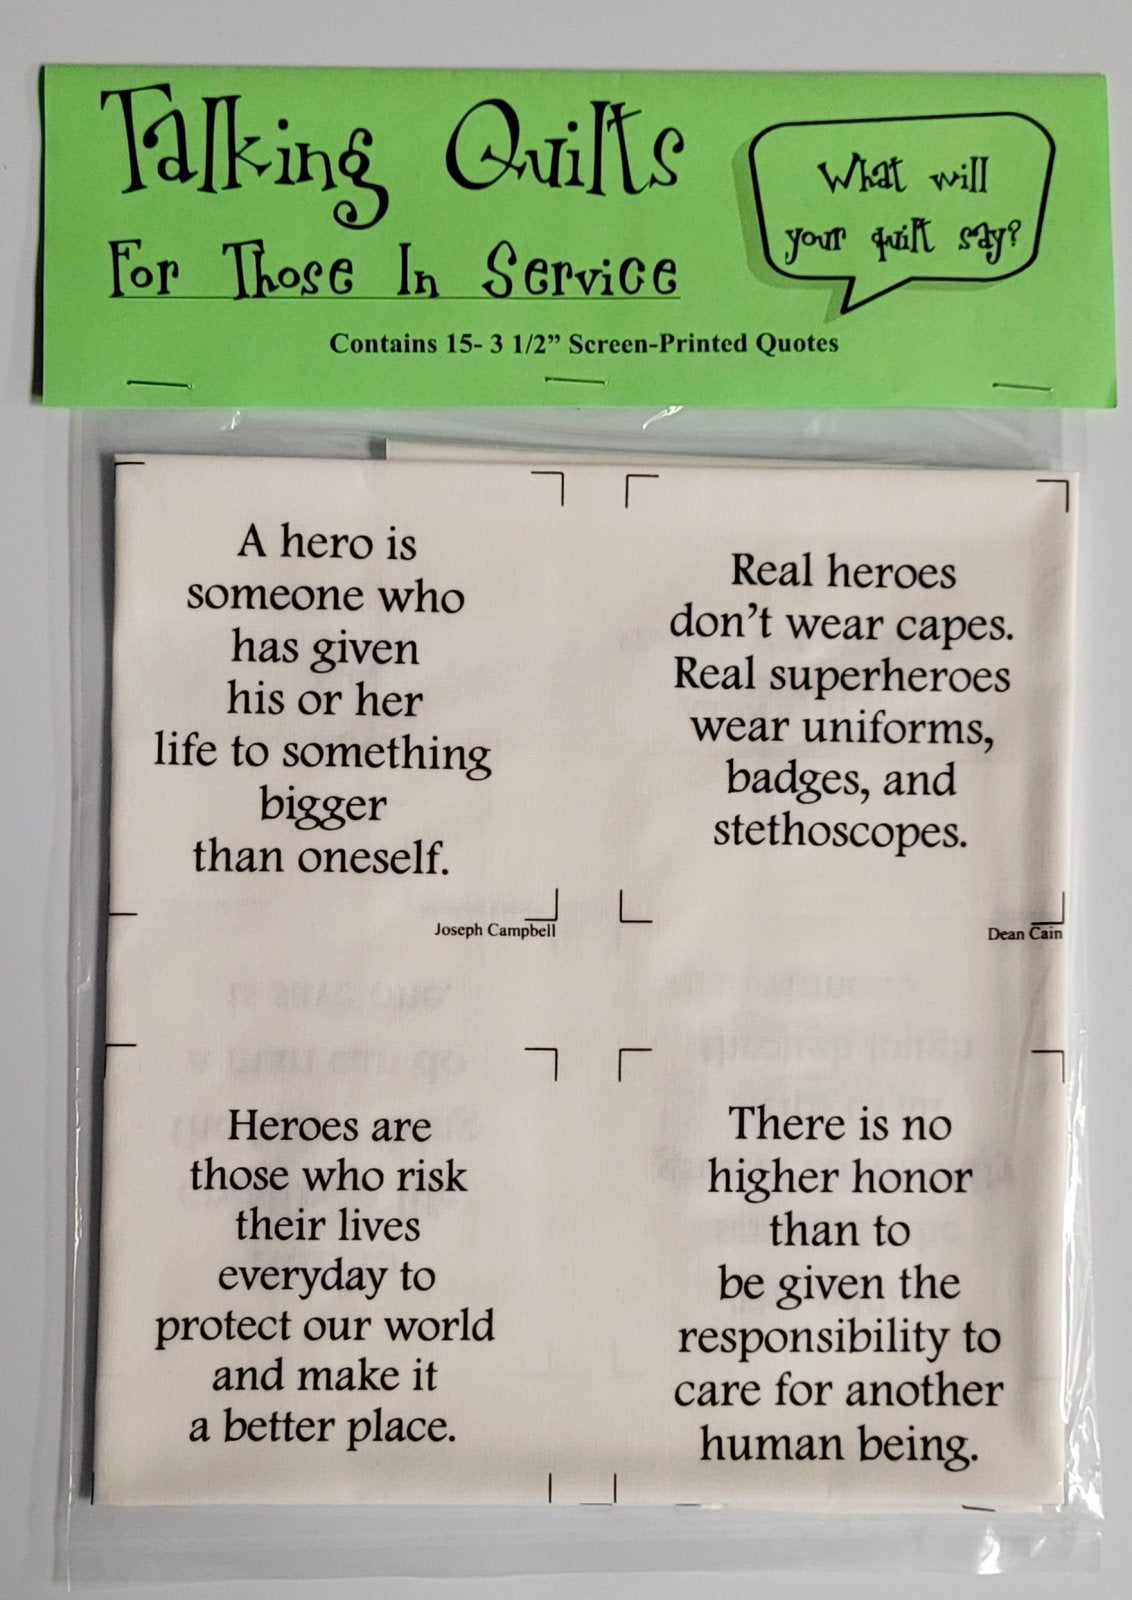 Talking Quilts
For Those In Service
What will
your quilt say?
Contains 15- 3 1/2” Screen-Printed Quotes
A hero is
someone who
has given
his or her
life to something
bigger
than oneself.
Joseph Campbell
Real heroes
don’t wear capes.
Real superheroes
wear uniforms,
badges, and
stethoscopes.
Dean Cain
Heroes are
those who risk
their lives
everyday to
protect our world
and make it
a better place.
There is no
higher honor
than to
be given the
responsibility to
care for another
human being.